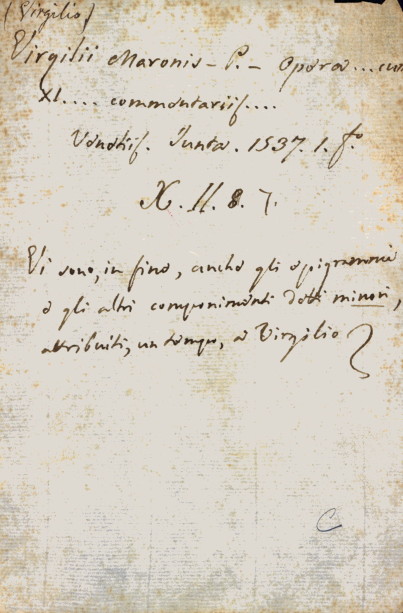 (Virgilio)
Virgilii Maronis - P. - Opera ... cum
XI .... commentariis ....
Venetiis. Junta. 1537. 1. f.º
X. II. 8. 7.
Vi sono, in fine, anche gli epigrammi
e gli altri componimenti detti minori,
attribuiti, un tempo, a Virgilio
C